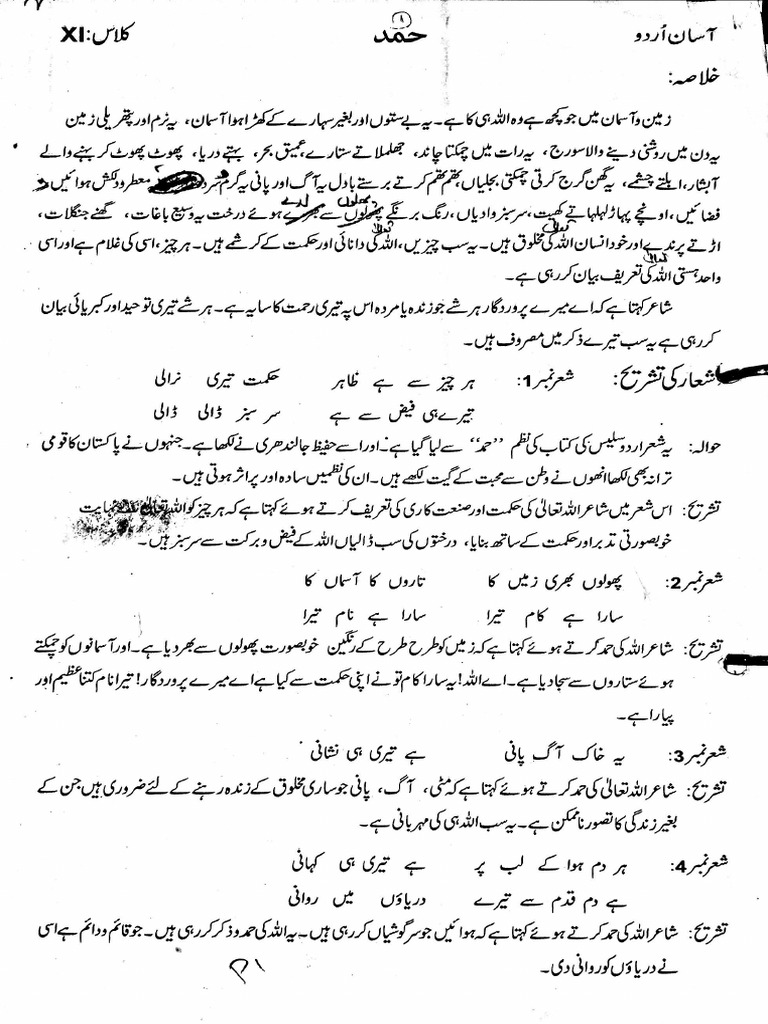 آسان اُردو حمد ۸ کلاس: XI
خلاصہ:
زمین و آسمان میں جو کچھ ہے وہ اللہ ہی کا ہے۔ یہ بے ستوں اور بغیر سہارے کے کھڑا ہوا آسمان، یہ نرم اور پتھریلی زمین
یہ دن میں روشنی دینے والا سورج، یہ رات میں چمکتا چاند، جھلملاتے ستارے، عمیق بحر، بہتے دریا، پھوٹ پھوٹ کر بہنے والے
آبشار، ابلتے چشمے، یہ گھن گرج کرتی چمکتی بجلیاں، چھم چھم کرتے برستے بادل یہ آگ اور پانی یہ گرم سرد معطر و دلکش ہوائیں
فضائیں، اونچے پہاڑ لہلہاتے کھیت، سرسبز وادیاں، رنگ برنگے پھولوں سے لدے ہوئے درخت یہ وسیع باغات، گھنے جنگلات،
اڑتے پرندے اور خود انسان اللہ تعالیٰ کی مخلوق ہیں۔ یہ سب چیزیں، اللہ تعالیٰ کی دانائی اور حکمت کے کرشمے ہیں۔ ہر چیز، اسی کی غلام ہے اور اسی
واحد ہستی اللہ تعالیٰ کی تعریف بیان کر رہی ہے۔
شاعر کہتا ہے کہ اے میرے پروردگار ہر شے جو زندہ یا مردہ اس پہ تیری رحمت کا سایہ ہے۔ ہر شے تیری توحید اور کبریائی بیان
کر رہی ہے یہ سب تیرے ذکر میں مصروف ہیں۔
شعار کی تشریح: شعر نمبر 1: ہر چیز سے ہے ظاہر حکمت تیری نرالی
تیرے ہی فیض سے ہے سر سبز ڈالی ڈالی
حوالہ: یہ شعر اردو سلیس کی کتاب کی نظم "حمد" سے لیا گیا ہے۔ اور اسے حفیظ جالندھری نے لکھا ہے۔ جنہوں نے پاکستان کا قومی
ترانہ بھی لکھا انھوں نے وطن سے محبت کے گیت لکھے ہیں۔ ان کی نظمیں سادہ اور پر اثر ہوتی ہیں۔
تشریح: اس شعر میں شاعر اللہ تعالیٰ کی حکمت اور صنعت کاری کی تعریف کرتے ہوئے کہتا ہے کہ ہر چیز کو اللہ تعالیٰ نے نہایت
خوبصورتی تدبر اور حکمت کے ساتھ بنایا، درختوں کی سب ڈالیاں اللہ کے فیض و برکت سے سرسبز ہیں۔
شعر نمبر 2: پھولوں بھری زمیں کا تاروں کا آسماں کا
سارا ہے کام تیرا سارا ہے نام تیرا
تشریح: شاعر اللہ کی حمد کرتے ہوئے کہتا ہے کہ زمیں کو طرح طرح کے رنگین خوبصورت پھولوں سے بھر دیا ہے۔ اور آسمانوں کو چمکتے
ہوئے ستاروں سے سجا دیا ہے۔ اے اللہ! یہ سارا کام تو نے اپنی حکمت سے کیا ہے اے میرے پروردگار! تیرا نام کتنا عظیم اور
پیارا ہے۔
شعر نمبر 3: یہ خاک آگ پانی ہے تیری ہی نشانی
تشریح: شاعر اللہ تعالیٰ کی حمد کرتے ہوئے کہتا ہے کہ مٹی، آگ، پانی جو ساری مخلوق کے زندہ رہنے کے لئے ضروری ہیں جن کے
بغیر زندگی کا تصور نا ممکن ہے۔ یہ سب اللہ ہی کی مہربانی ہے۔
شعر نمبر 4: ہر دم ہوا کے لب پر ہے تیری ہی کہانی
ہے دم قدم سے تیرے دریاؤں میں روانی
تشریح: شاعر اللہ کی حمد کرتے ہوئے کہتا ہے کہ ہوائیں جو سرگوشیاں کر رہی ہیں۔ یہ اللہ کی حمد و ذکر کر رہی ہیں۔ جو قائم و دائم ہے اسی
نے دریاؤں کو روانی دی۔